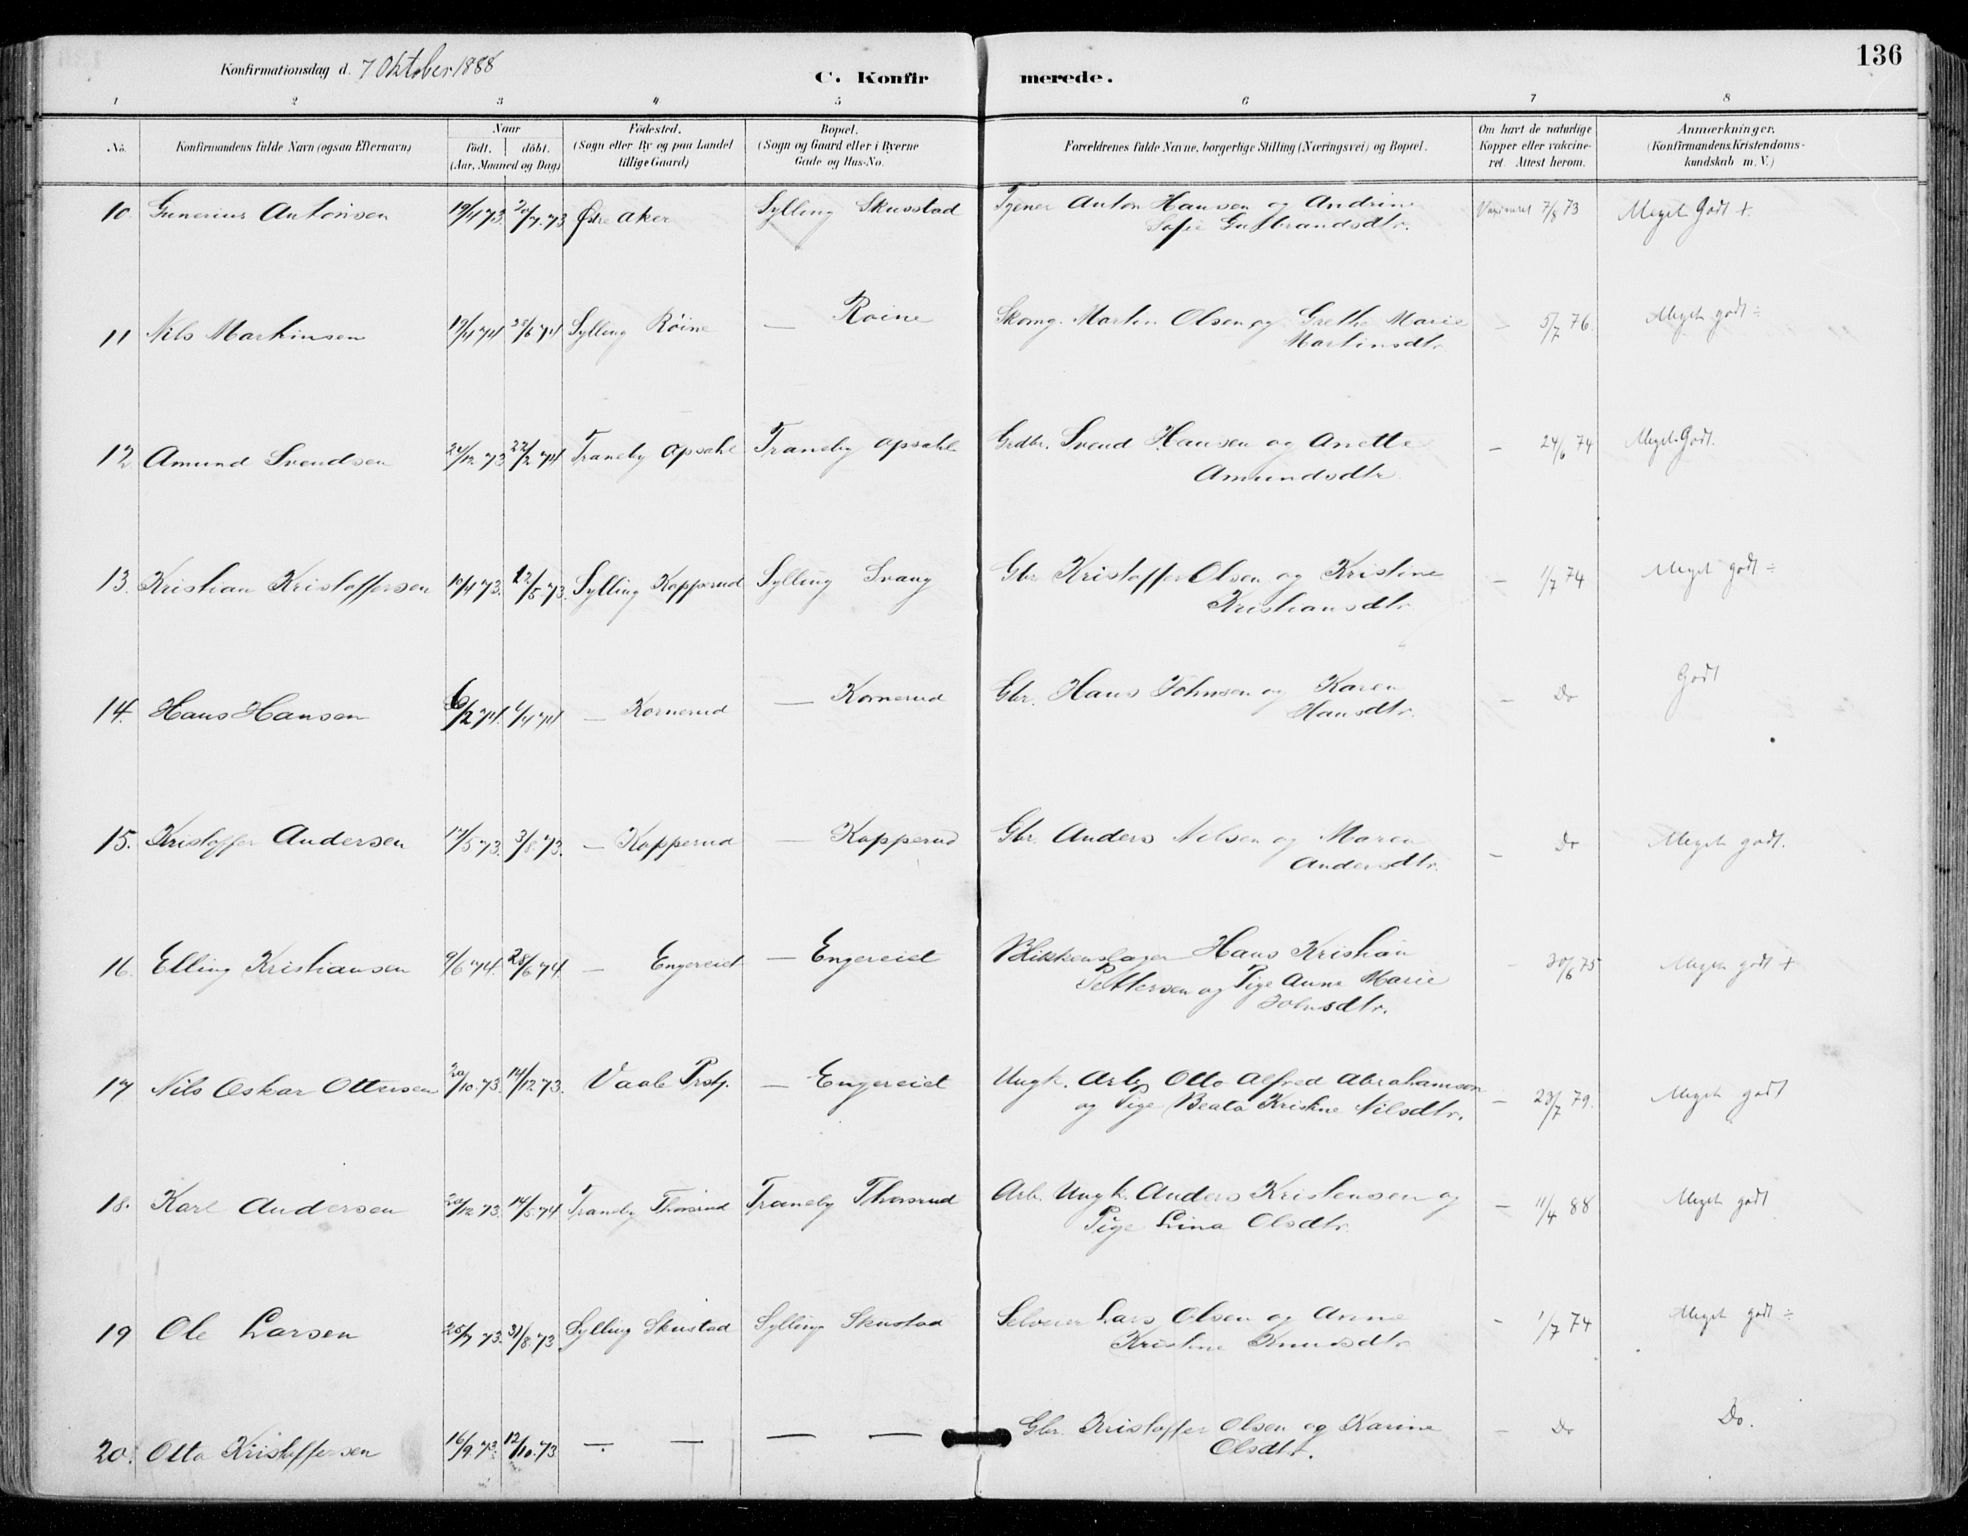 136
Konfirmationsdag d. 7 Oktober 1888
C. Konfirmerede.
1 2 3 4 5 6 7 8
No. Konfirmandens fulde Navn (ogsaa Efternavn) Naar født. døbt. (Aar, Maaned og Dag) Fødested. (Sogn eller By og paa Landet tillige Gaard) Bopæl. (Sogn og Gaard eller i Byerne Gade og Hus-No. Forældrenes fulde Navne, borgerlige Stilling (Næringsvei) og Bopæl. Om havt de naturlige Kopper eller vakcineret. Attest herom. Anmærkninger. (Konfirmandens Kristendomskundskab m. V.)
10. Gunerius Antonsen 19/4 73. 20/7.73 Østre Aker Sylling Skusstad Tjener Anton Hansen og Andrine 7/8 73 Meget Godt +
Sofie Gulbrandsdtr.
11 Nils Martinsen 19/4 74 28/6 74 Sylling Röine — Roine Skomg. Martin Olsen og Grethe Marie — 5/7 76. Meget godt ÷
Martinsdtr.
12 Amund Svendsen 24/12 73 22/2 74 Traneby Opsahl Traneby Opsahl Grdbr. Svend Hansen og Anette — 24/6 74 Meget Godt.
Amundsdtr.
13. Kristian Kristoffersen 10/4 73. 22/5.73. Sylling Kopperud Sylling Svang Gbr Kristoffer Olsen og Kristine — 1/7 74 Meget godt ÷
Kristiansdtr.
14. Hans Hansen 6/2 74. 6/4 74 — Kornerud — Kornerud Gbr. Hans Johnsen og Karen — Do Godt
Hansdtr.
15. Kristoffer Andersen 17/5 73. 3/8.73. — Kopperud — Kopperud Gbr. Anders Nilsen og Maren — Do Meget godt.
Andersdtr.
16. Elling Kristiansen 9/6 74. 28/6 74. — Engereid — Engereid Blikkenslager Hans Kristian — 30/6 75 Meget godt +
Pettersen og Pige Anne Marie
Johnsdtr.
17 Nils Oskar Ottersen 20/10.73. 14/12 73. Vaale Prstj. — Engereid Ungk. Arb. Otto Alfred Abrahamsen — 23/7 79. Meget godt
og Pige Beata Kristine Nilsdtr.
18. Karl Andersen 20/12 73. 14/5.74 Traneby Thorsrud Traneby Thorsrud Arb. Ungk. Anders Kristensen og — 11/4 88 Meget godt
Pige Lina Olsdtr.
19 Ole Larsen 25/7 73. 31/8.73 Sylling Skustad Sylling Skustad Selveier Lars Olsen og Anne — 1/7 74 Meget godt ÷
Kristine Knudsdtr.
20. Otto Kristoffersen 16/9 73. 12/10.73 — — — — Gbr. Kristoffer Olsen og Karine — Do Do.
Olsdtr.